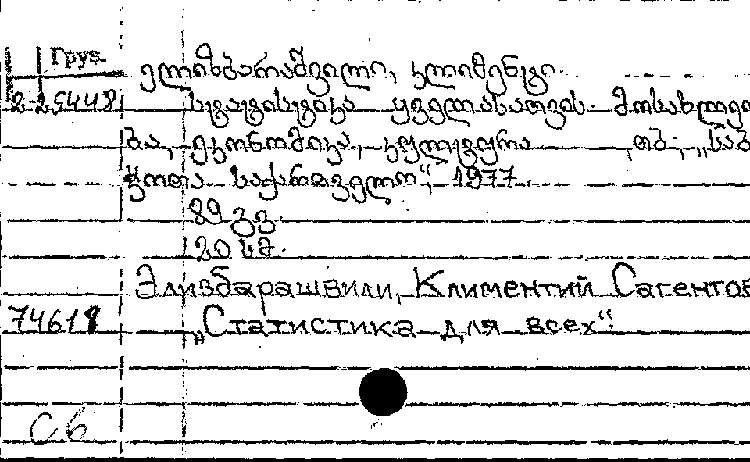 Груз.
ელიზბარაშვილი, კლიმენტი.
2-25448
სტატისტიკა ყველასათვის. მოსახლეო
ბა, ეკონომიკა, კულტურა თბ., „საბ
ჭოთა საქართველო“, 1977.
89 გვ.
20 სმ.
Элизбарашвили, Климентий Сагентов
74618 „Статистика для всех“.
Сб